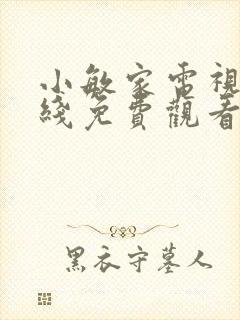 小敏家電視
綫免費觀看
黑衣守墓人